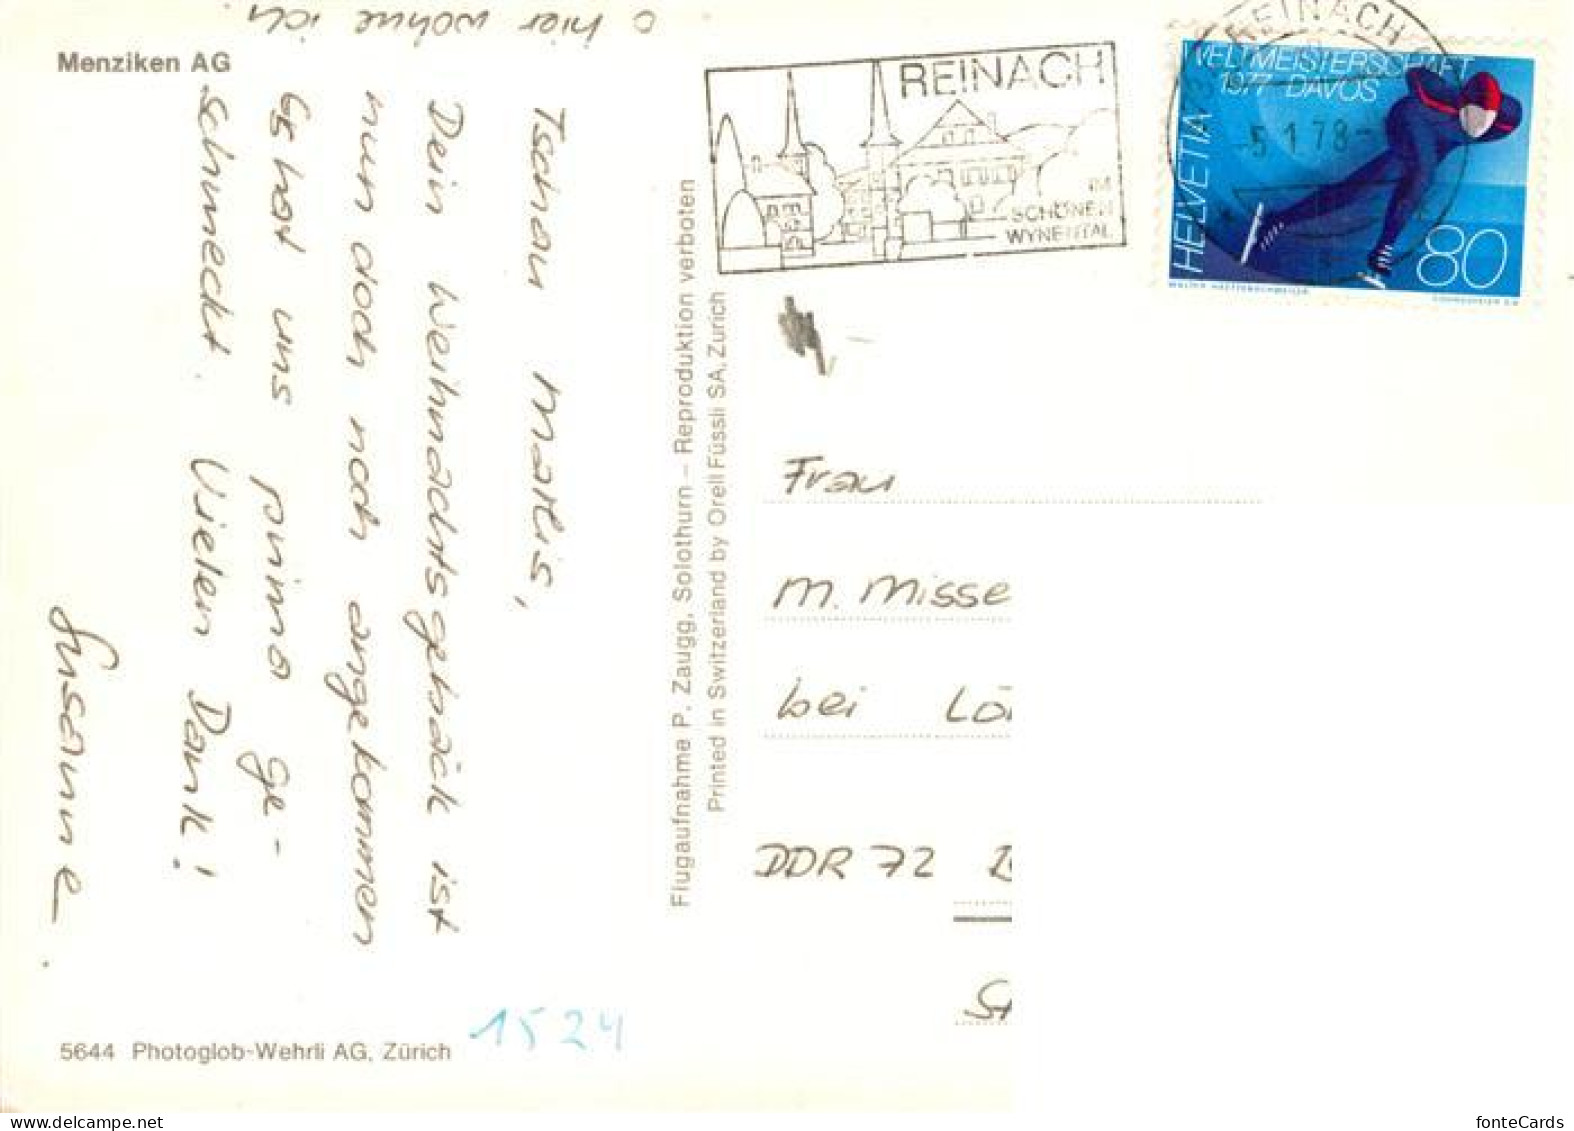 o hier wohne ich
Menziken AG
Tschau Marlis,
Dein Weihnachtsgebäck ist
nun doch noch angekommen
Es hat uns prima ge-
schmeckt. Vielen Dank!
Susanne.
5644 Photoglob-Wehrli AG, Zürich
1524
Flugaufnahme P. Zaugg, Solothurn – Reproduktion verboten
Printed in Switzerland by Orell Füssli SA, Zürich
REINACH
IM
SCHÖNEN
WYNENTAL
REINACH
-5.1.78-
WELTMEISTERSCHAFT
1977 DAVOS
HELVETIA
80
Frau
M. Misse
bei Lö
DDR 72
St
delcampe.net
fonteCards